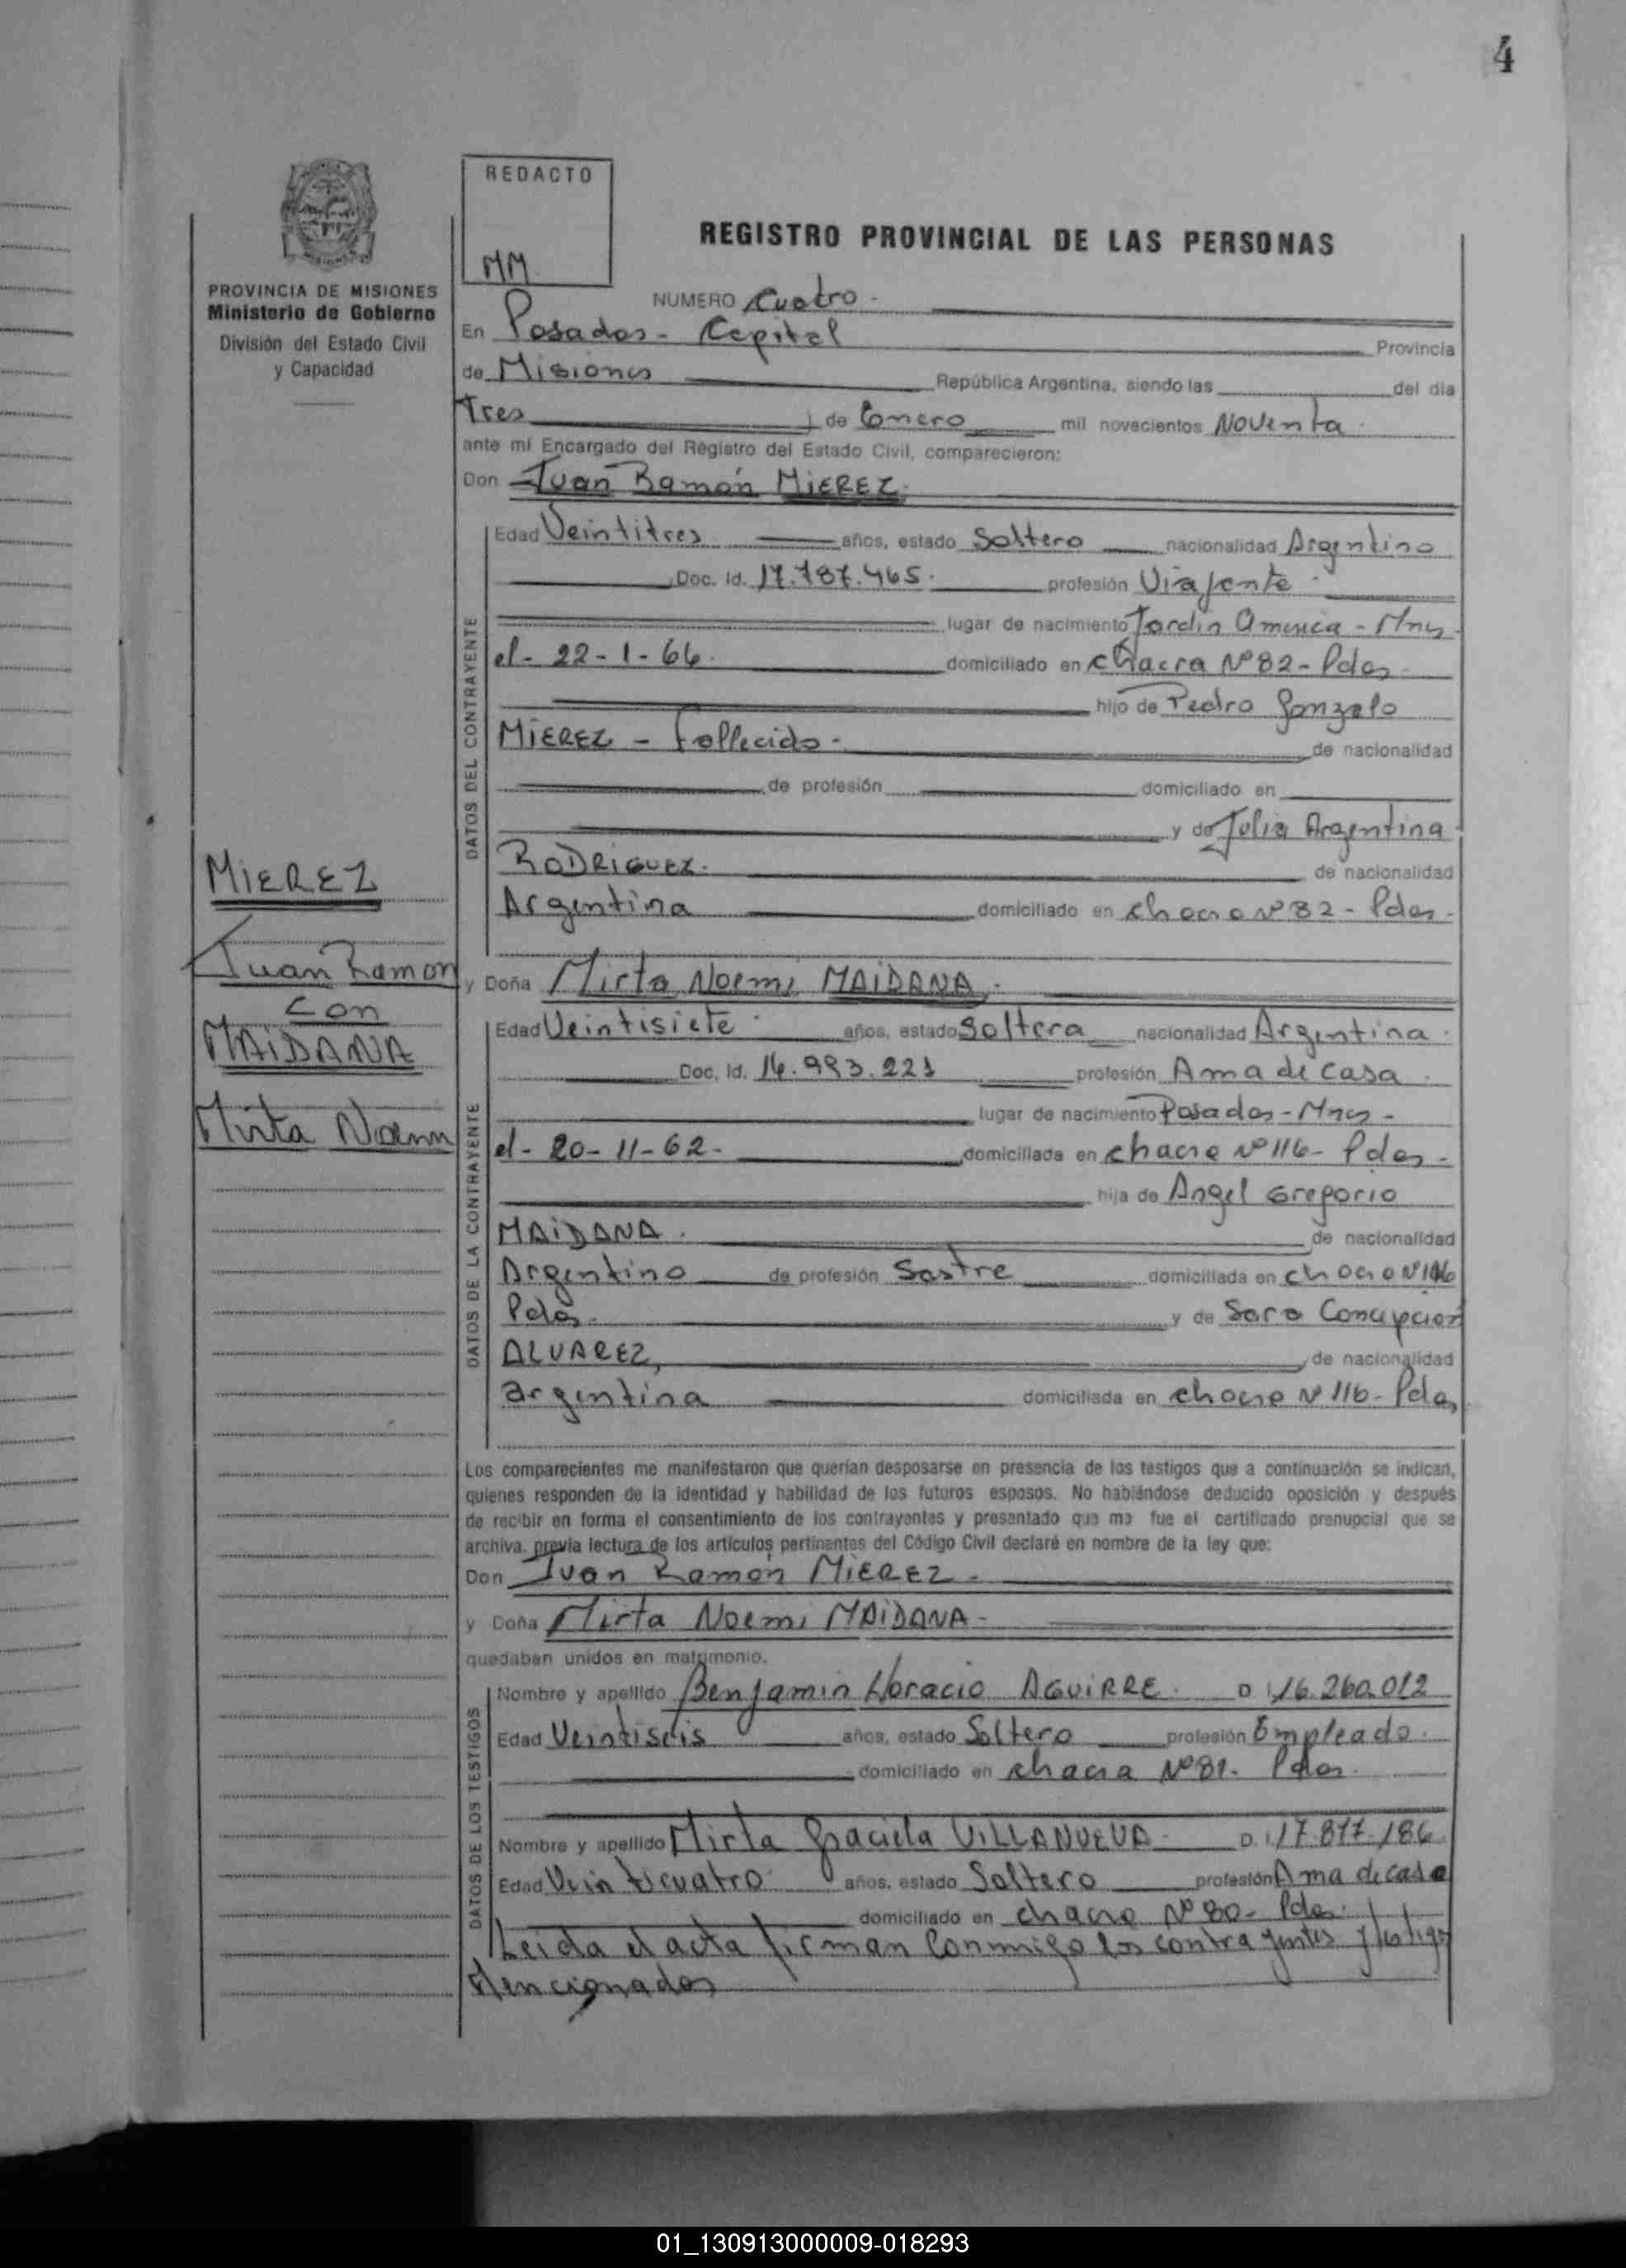 4
REDACTO
MM
PROVINCIA DE MISIONES
Ministerio de Gobierno
División del Estado Civil
y Capacidad
REGISTRO PROVINCIAL DE LAS PERSONAS
NUMERO Cuatro -
En Posadas - Capital Provincia
de Misiones República Argentina, siendo las del día
Tres de Enero mil novecientos Noventa
ante mí Encargado del Registro del Estado Civil, comparecieron:
Don Juan Ramón MIEREZ
DATOS DEL CONTRAYENTE
Edad Veintitres años, estado Soltero nacionalidad Argentino
Doc. Id. 17.787.465 profesión Viajante
lugar de nacimiento Jardin America - Mnes
el - 22-1-66 domiciliado en chacra Nº 82 - Pdas
hijo de Pedro Gonzalo
MIEREZ - Fallecido - de nacionalidad
de profesión domiciliado en
y de Julia Argentina
RODRIGUEZ. de nacionalidad
Argentina domiciliado en chacra nº 82 - Pdas -
MIEREZ
Juan Ramon
con
MAIDANA
Mirta Noemi
y Doña Mirta Noemi MAIDANA -
DATOS DE LA CONTRAYENTE
Edad Veintisiete años, estado Soltera nacionalidad Argentina
Doc. Id. 14.993.221 profesión Ama de casa
lugar de nacimiento Posadas - Mnes -
el - 20-11-62 - domiciliada en chacra Nº 116 - Pdas -
hija de Angel Gregorio
MAIDANA. de nacionalidad
Argentino de profesión Sastre domiciliada en chacra Nº 116
Pdas. y de Sara Concepcion
ALVAREZ, de nacionalidad
argentina domiciliada en chacra Nº 116 - Pdas
Los comparecientes me manifestaron que querían desposarse en presencia de los testigos que a continuación se indican,
quienes responden de la identidad y habilidad de los futuros esposos. No habiéndose deducido oposición y después
de recibir en forma el consentimiento de los contrayentes y presentado que me fue el certificado prenupcial que se
archiva. previa lectura de los artículos pertinentes del Código Civil declaré en nombre de la ley que:
Don Juan Ramón MIEREZ -
y Doña Mirta Noemi MAIDANA -
quedaban unidos en matrimonio.
DATOS DE LOS TESTIGOS
Nombre y apellido Benjamin Horacio AGUIRRE. D.I. 16.260.012
Edad Veintiseis años, estado Soltero profesión Empleado.
domiciliado en chacra Nº 81 - Pdas.
Nombre y apellido Mirta Graciela VILLANUEVA D.I. 17.817.186
Edad Veinticuatro años, estado Soltero profesión Ama de casa
domiciliado en chacra Nº 80 - Pdas.
Leida el acta firman conmigo los contrayentes y testigos
Mencionados
01_130913000009-018293